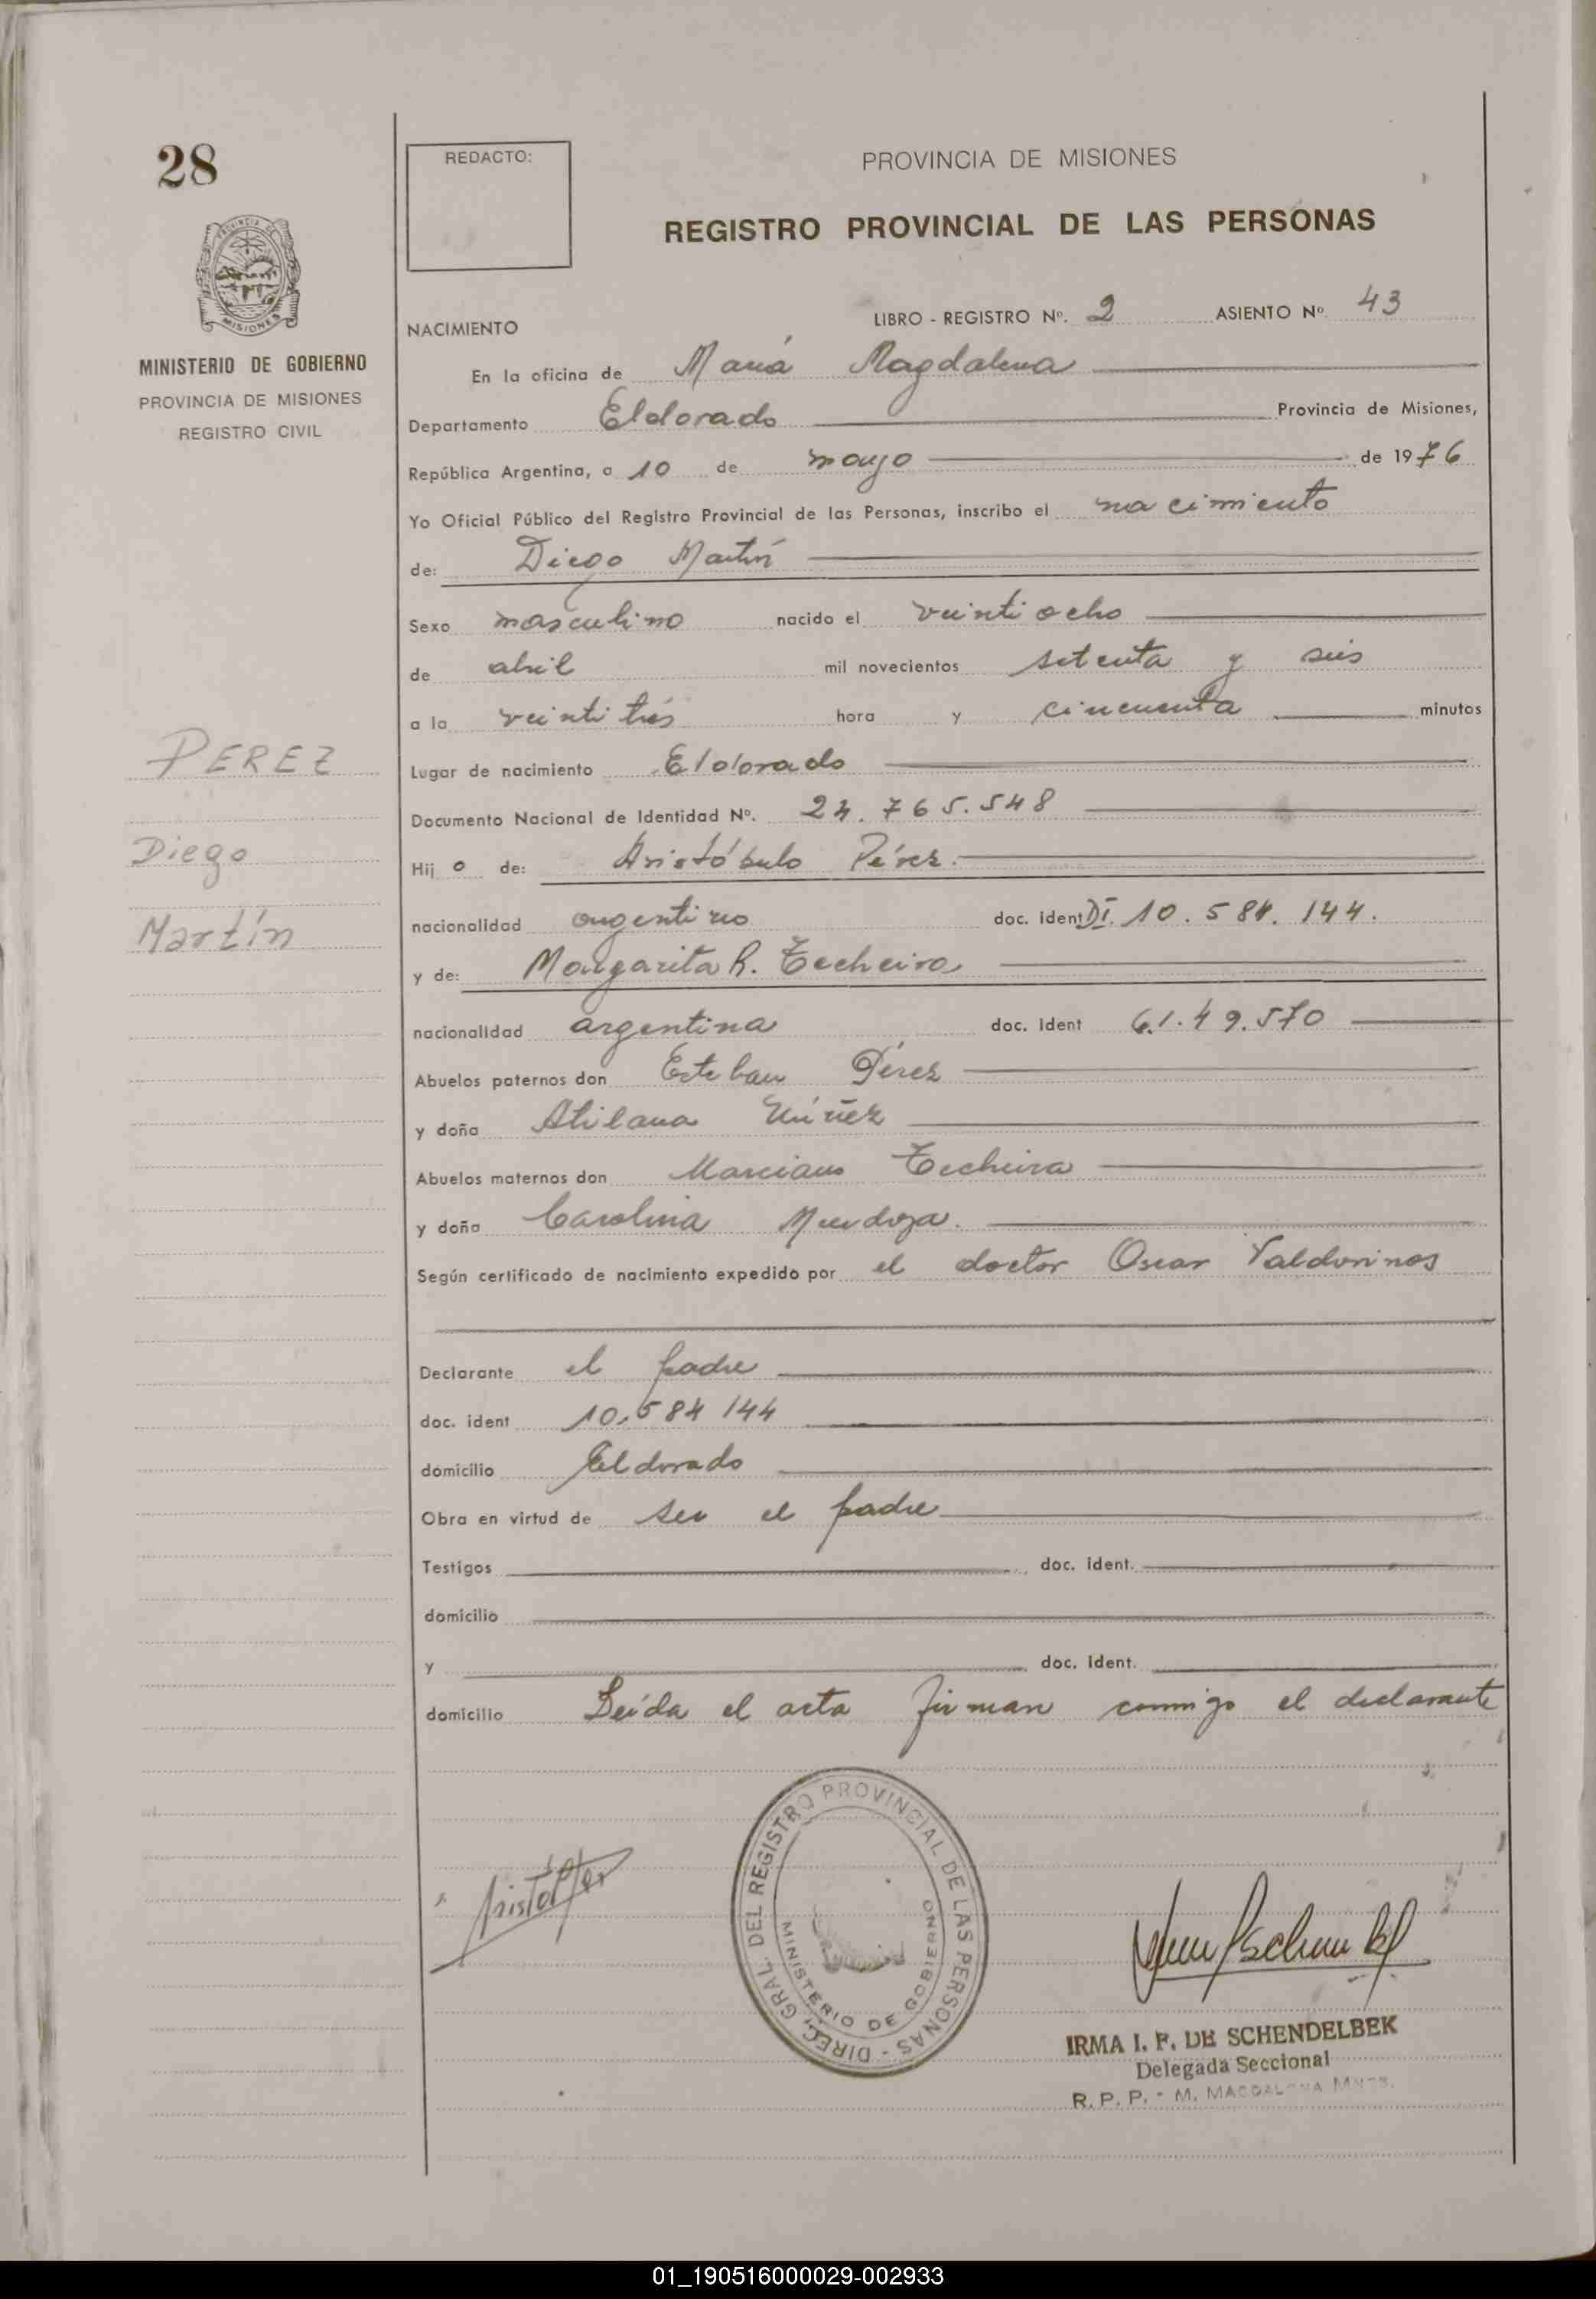 28
PROVINCIA DE
MISIONES
MINISTERIO DE GOBIERNO
PROVINCIA DE MISIONES
REGISTRO CIVIL
PEREZ
Diego
Martín
REDACTO:
PROVINCIA DE MISIONES
REGISTRO PROVINCIAL DE LAS PERSONAS
NACIMIENTO LIBRO - REGISTRO Nº. 2 ASIENTO Nº 43
En la oficina de María Magdalena
Departamento Eldorado Provincia de Misiones,
República Argentina, a 10 de mayo de 1976
Yo Oficial Público del Registro Provincial de las Personas, inscribo el nacimiento
de: Diego Martín
Sexo masculino nacido el veintiocho
de abril mil novecientos setenta y seis
a la veintitrés hora y cincuenta minutos
Lugar de nacimiento Eldorado
Documento Nacional de Identidad Nº. 24.765.548
Hijo de: Aristóbulo Pérez.
nacionalidad argentino doc. ident DI. 10.584.144.
y de: Margarita R. Techeira
nacionalidad argentina doc. ident 6.1.49.570
Abuelos paternos don Esteban Pérez
y doña Atilana Núñez
Abuelos maternos don Marciano Techeira
y doña Carolina Mendoza.
Según certificado de nacimiento expedido por el doctor Oscar Valdovinos
Declarante el padre
doc. ident 10.584144
domicilio Eldorado
Obra en virtud de ser el padre
Testigos doc. ident.
domicilio
y doc. ident.
domicilio Leída el acta firman conmigo el declarante
DIREC. GRAL. DEL REGISTRO PROVINCIAL DE LAS PERSONAS -
MINISTERIO DE GOBIERNO
IRMA I. F. DE SCHENDELBEK
Delegada Seccional
R. P. P. - M. MAGDALENA MNES.
01_190516000029-002933